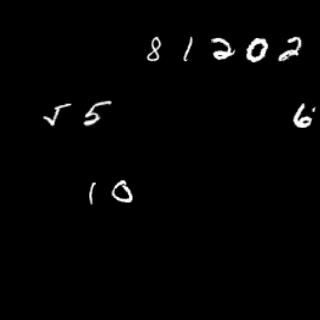 81202
55 6
10